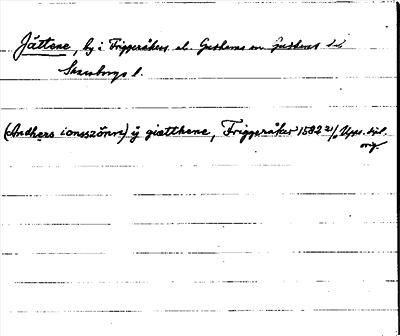 Jättene, by i Friggeråkers el. Gudhems sn Gudhems hd
Skaraborgs l.
(Andhers ionsszönn) ÿ giætthene, Friggeråker 1582 21/ Upps. bibl.
orig.